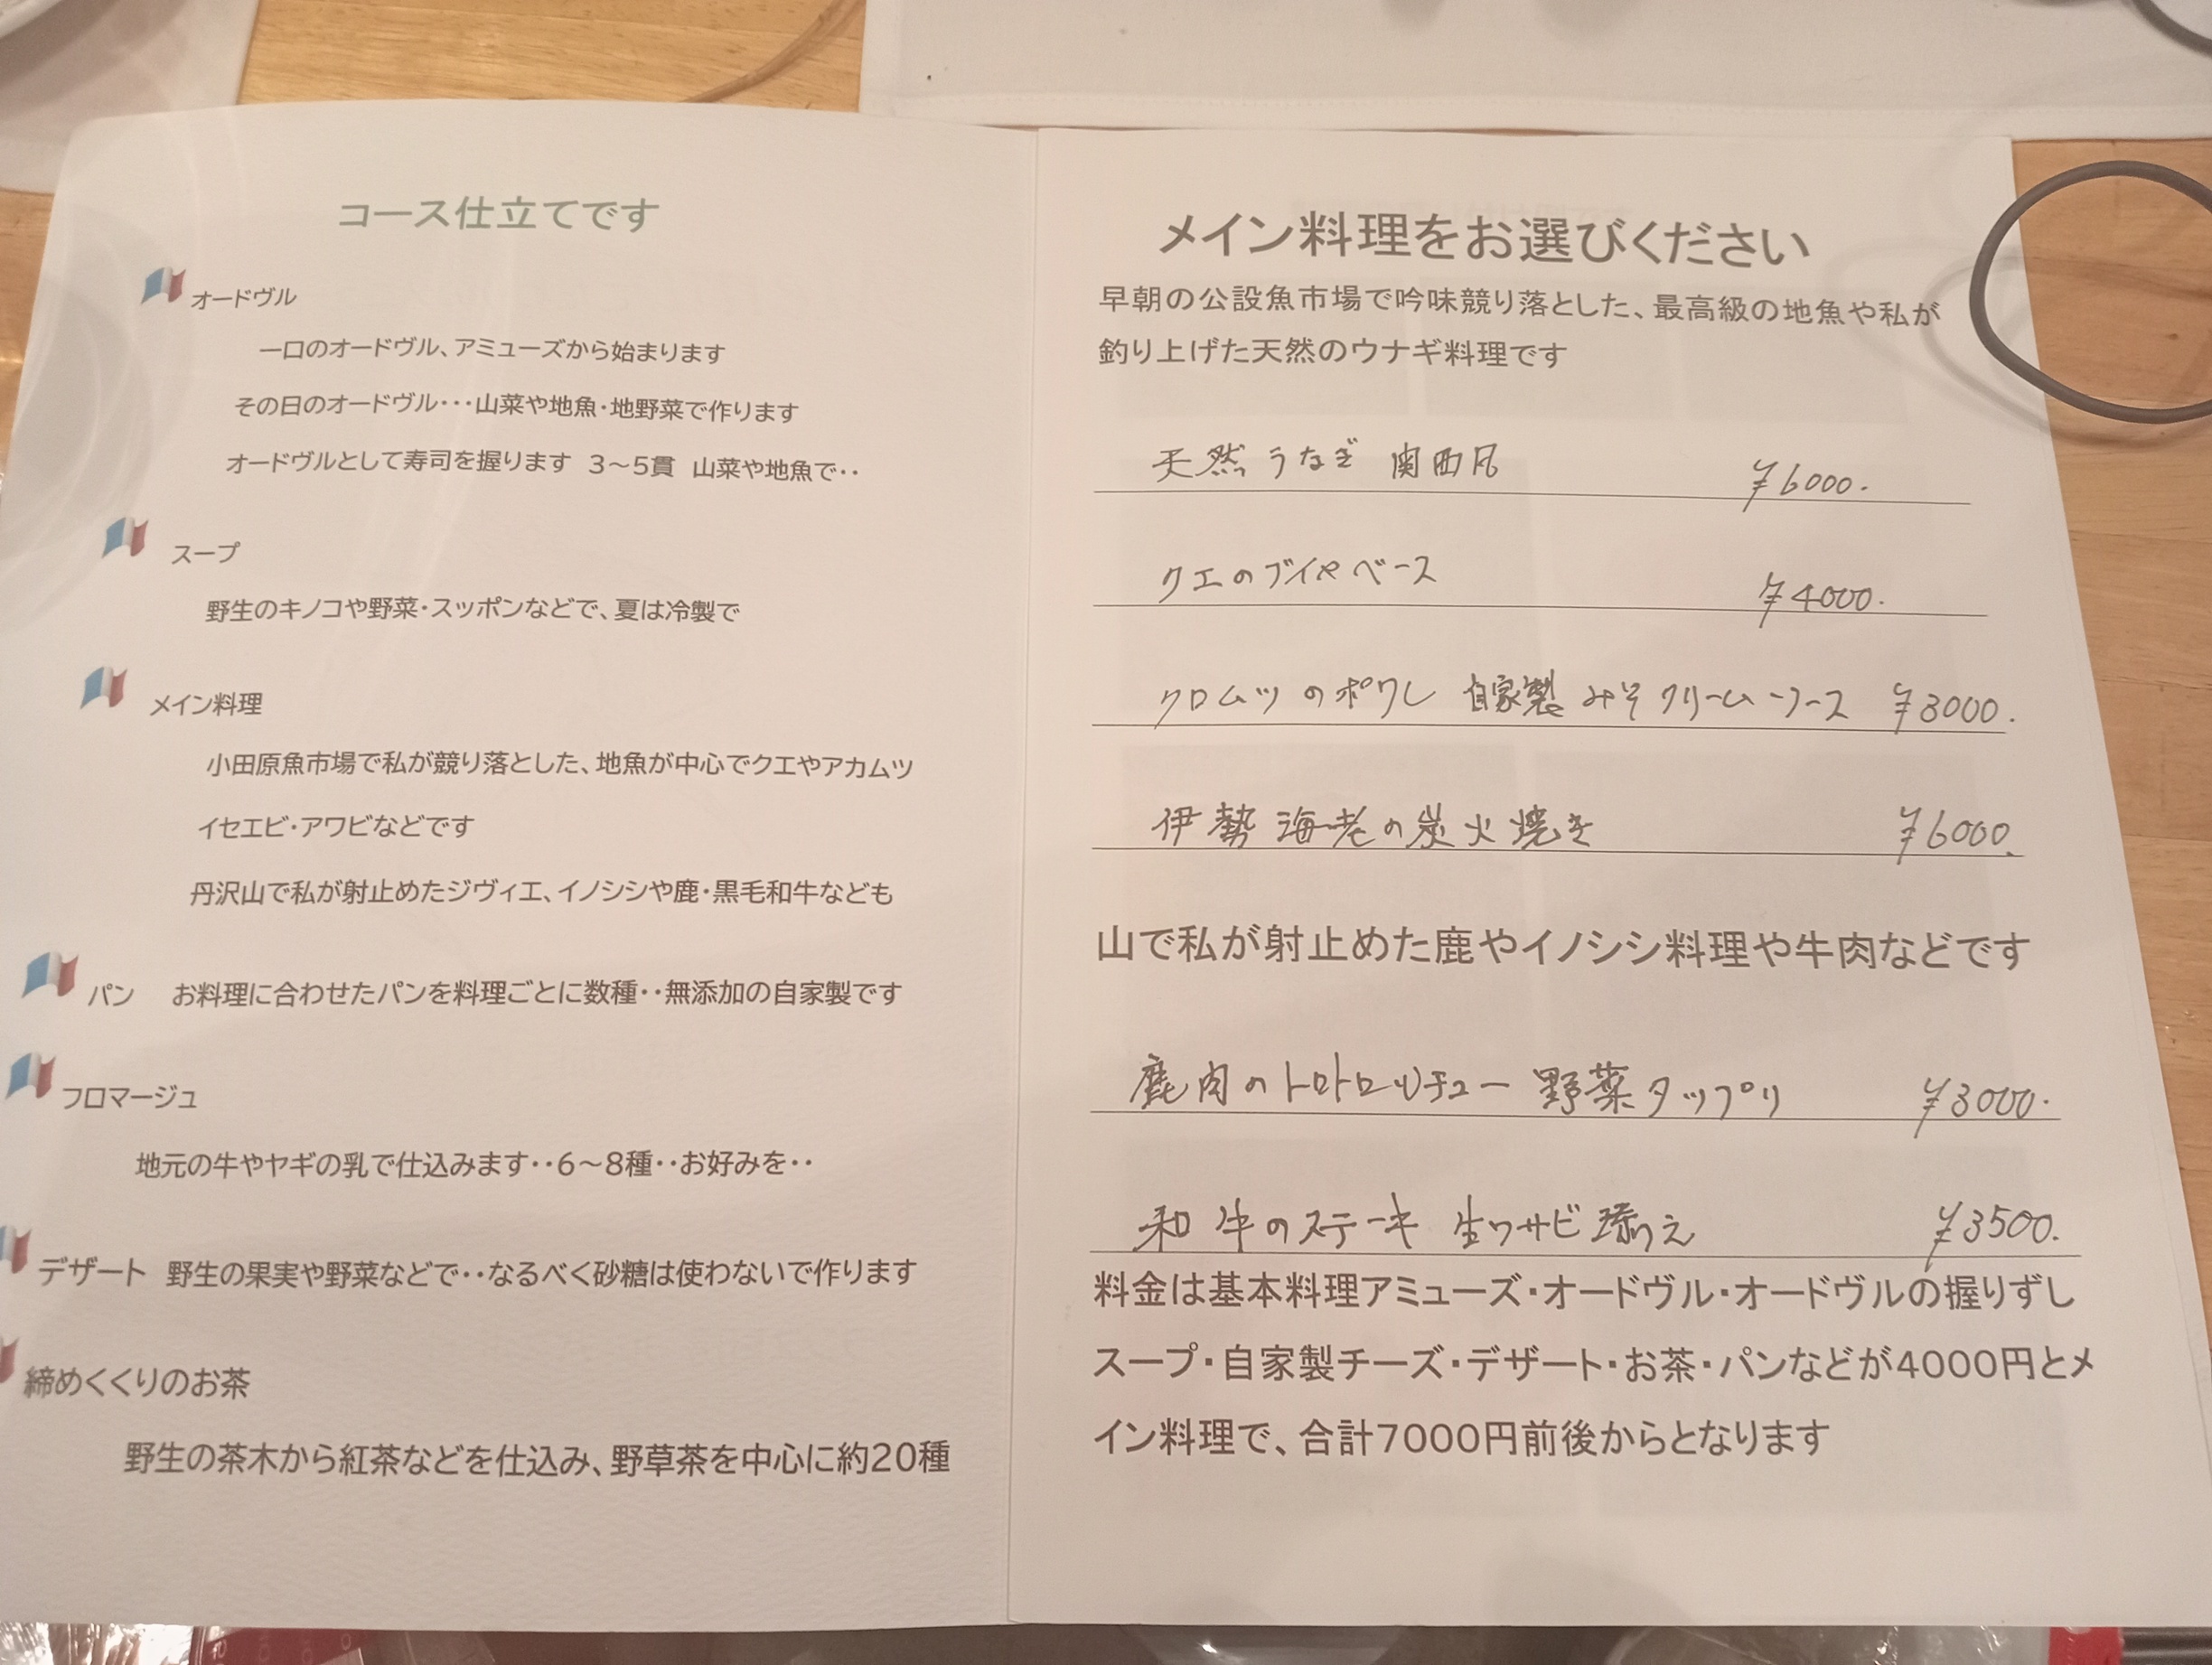 コース仕立てです
オードヴル
一口のオードヴル、アミューズから始まります
その日のオードヴル・・・山菜や地魚・地野菜で作ります
オードヴルとして寿司を握ります 3～5貫 山菜や地魚で・・
スープ
野生のキノコや野菜・スッポンなどで、夏は冷製で
メイン料理
小田原魚市場で私が競り落とした、地魚が中心でクエやアカムツ
イセエビ・アワビなどです
丹沢山で私が射止めたジヴィエ、イノシシや鹿・黒毛和牛なども
パン お料理に合わせたパンを料理ごとに数種・・無添加の自家製です
フロマージュ
地元の牛やヤギの乳で仕込みます・・6～8種・・お好みを・・
デザート 野生の果実や野菜などで・・なるべく砂糖は使わないで作ります
締めくくりのお茶
野生の茶木から紅茶などを仕込み、野草茶を中心に約20種
メイン料理をお選びください
早朝の公設魚市場で吟味競り落とした、最高級の地魚や私が
釣り上げた天然のウナギ料理です
天然うなぎ 関西風 ¥6000.
クエのブイヤベース ¥4000.
クロムツのポワレ 自家製みそクリームソース ¥3000.
伊勢海老の炭火焼き ¥6000.
山で私が射止めた鹿やイノシシ料理や牛肉などです
鹿肉のトロトロシチュー 野菜タップリ ¥3000.
和牛のステーキ 生ワサビ添え ¥3500.
料金は基本料理アミューズ・オードヴル・オードヴルの握りずし
スープ・自家製チーズ・デザート・お茶・パンなどが4000円とメ
イン料理で、合計7000円前後からとなります